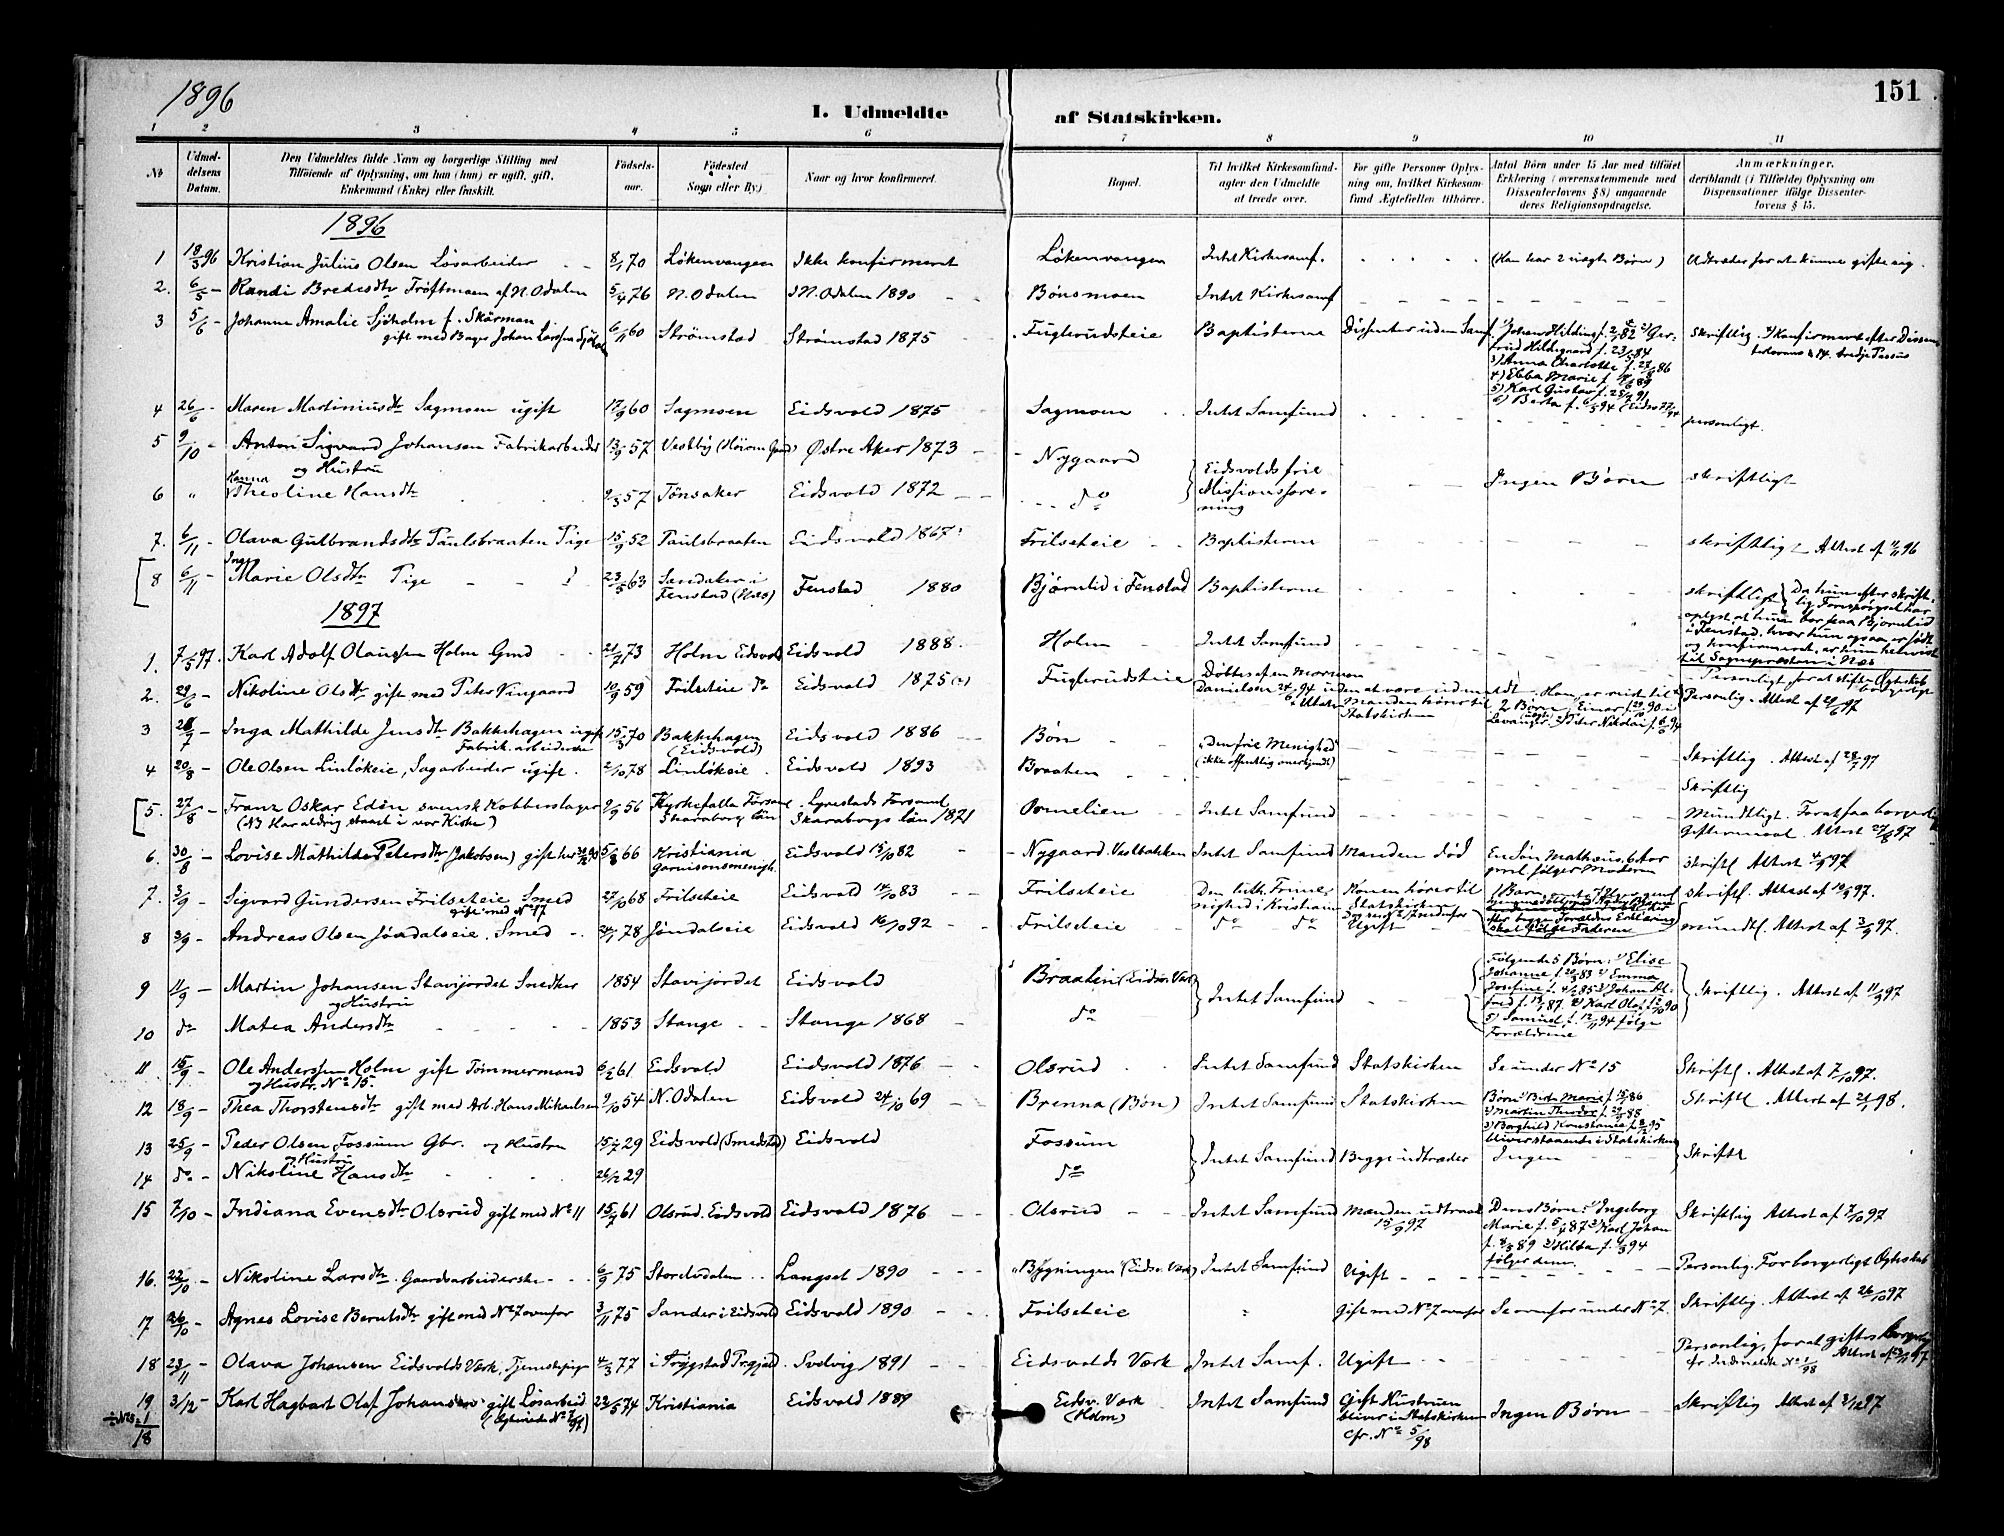 1896
151
I. Udmeldte af Statskirken.
1 2 3 4 5 6 7 8 9 10 11
No
Udmeldelsens Datum.
Den Udmeldtes fulde Navn og borgerlige Stilling med Tilføiende af Oplysning, om han (hun) er ugift, gift, Enkemand (Enke) eller fraskilt.
Fødselsaar.
Fødested (Sogn eller By.)
Naar og hvor konfirmeret.
Bopæl.
Til hvilket Kirkesamfund agter den Udmeldte at træde over.
For gifte Personer Oplysning om, hvilket Kirkesamfund Ægtefællen tilhører.
Antal Børn under 15 Aar med tilføiet Erklæring (overensstemmende med Dissenterlovens § 8) angaaende deres Religionsopdragelse.
Anmærkninger, deriblandt (i Tilfælde) Oplysning om Dispensationer ifølge Dissenterlovens § 15.
1896
1 18/3 96 Kristian Julius Olsen Løsarbeider 8/1 70 Løkenvangen Ikke konfirmeret Løkenvangen Intet Kirkesamf. (Han har 2 uægte Børn) Udtræder for at kunne gifte sig.
2. 6/5 - Randi Bredesdtr Trøftmoen af N. Odalen 5/4 76 N. Odalen N. Odalen 1890 Bønsmoen Intet Kirkesamf
3 5/6 - Johanne Amalie Sjøholm f. Skårman 6/11 60 Strømstad Strømstad 1875 Fuglerudsteie Baptisterne Dissenter uden Samf. 1) Johan Hilding
gift med Bager Johan Larssen
3) Anna Charlotte f. 27/8 86
4) Ebba Marie
5) Karl Gustav
6) Berta
4 26/6 - Maren Martiniusdtr Sagmoen ugift 17/9 60 Sagmoen Eidsvold 1875 Sagmoen Intet Samfund personligt.
5 9/10 - Anton Sigvard Johansen Fabrikarbeider 13/9 57 Vestby Østre Aker 1873 Nygaard
og Hustru
Eidsvolds frie Missionsforening Ingen Børn skriftligt
6 " Hanna Theoline Hansdtr 2/3 57 Tønsaker Eidsvold 1872 do
7. 6/11 - Olava Gulbrandsdtr Paulsbraaten Pige 15/9 52 Paulsbraaten Eidsvold 1867 Frilseteie Baptisterne skriftligt - Attest af 11/11 96
8 6/11 - Inga Marie Olsdtr Pige 23/5 63 Sandaker i Fenstad (Næs) Fenstad 1880 Bjørnlid i Fenstad Baptisterne skriftligt
Da hun efter skriftlig Forespørgsel har oplyst at hun bor paa Bjørnlid i Fenstad, hvor hun ogsaa er født og konfirmeret, er hun henvist til Sognepresten i Næs
1897
1. 7/5 97. Karl Adolf Olaussen Holm Gmd 21/7 73 Holm Eidsvold Eidsvold 1888. Holm Intet Samfund Personligt for at stifte borgerligt Ægteskab
2. 29/6 - Nikoline Olsdtr gift med Peter Vingaard 10/9 59 Frilseteie do Eidsvold 1875 Fuglerudsteie Døbtes af en Mormon Danielsen 24/6 94 uden at være udmeldt. Manden hører til Statskirken 2 Børn Personlig. Attest af 29/6 97
3 28/7 - Inga Mathilde Jensdtr Bakkehagen ugift 15/3 70 Bakkehagen (Eidsvold) Eidsvold 1886 Bøn "Den frie Menighed" (ikke offentlig anerkjendt) Skriftlig. Attest af 28/7 97
Fabrikarbeiderske
4 20/8 - Ole Olsen Linløkeie, Sagarbeider ugift. 2/10 78 Linløkeie. Eidsvold 1893 Braaten Skriftlig
5. 27/8 - Franz Oskar Edén svensk Kobberslager 9/9 56 Kyrkefalla Församl. Skaraborg län Lyrestads Forsaml. Skaraborgs län 1871 Intet Samfund Mundtligt. For at faa borgerlig Giftermaal. Attest 27/8 97
(NB Har aldrig staaet i vor Kirke)
6. 30/8 - Lovise Mathilde Petersdtr (Jakobsen) gift 5/8 66 Kristiania Garnisonsmenigh. Eidsvold 15/10 82 Nygaard. Vestbakken Intet Samfund Manden død En Søn Mathæus, 6 Aar gml. følger Moderen skriftl Attest 4/9 97
7. 3/9 - Sigvard Gundersen Frilseteie Smed 27/10 68 Frilseteie Eidsvold 14/10 83 Frilseteie Den luth. Frimenighed i Kristiania Konen hører til Statskirken skriftl. Attest af 10/9 97.
gift med No 17
efter begge Forældres Erklæring skal følge Faderen
8 3/9 - Andreas Olsen Jøndalseie. Smed 78 Jøndalseie Eidsvold 16/10 92 Frilseteie do do Ugift mundtl. Attest af 3/9 97.
9 11/9 - Martin Johansen Stavijordet Snedker 1854 Stavijordet Eidsvold Braaten (Eidsv. Værk) Intet Samfund
og Hustru
Følgende 5 Børn: 1) Elise Johanne f. 20/3 83 2) Emma Josefine f. 4/1 85 3) Johan Alfred f. 19/1 87 4) Karl Olaf 5) Samuel f. 12/11 94 følge Forældrene
Skriftlig. Attest af 11/9 97
10 do Matea Andersdtr 1853 Stange Stange 1868 do
11 15/9 - Ole Anderssen Holm gift Tømmermand 6/2 61 Eidsvold Eidsvold 1876 Olsrud Intet Samfund Statskirken Se under No 15 Skriftl. Attest af 7/10 97.
og Hustr. No 15.
12 18/9 - Thea Thorstensdtr gift med Arb. Hans Mikaelsen 9/10 54 N. Odalen Eidsvold 24/10 69 Brenna (Bøn) Intet Samfund Statskirken
Børn 1) Birthe Marie 2) Martin Theodor 3) Borghild Konstanse bliver staaende i Statskirken
Skriftl. Attest af 21/1 98.
13 25/9 - Peder Olsen Fossum Gbr. og Hustru 15/7 29 Eidsvold (Smedstad) Eidsvold Fossum Intet Samfund Begge udtræder Ingen Skriftl
og Hustru
14 do - Nikoline Hansdtr 26/12 29 do
15 7/10 - Indiana Evensdtr Olsrud gift med No 11 15/7 61 Olsrud. Eidsvold Eidsvold 1876 Olsrud Intet Samfund Manden udtraadt 15/9 97
Deres Børn 1) Ingeborg Marie f. 5/4 87 2) Karl Johan f. 8/3 89 3) Hilda 94 følger dem.
Skriftlig Attest af 7/10 97
16. 22/10 - Nikoline Larsdtr. Gaardsarbeiderske 6/9 75 Stordødalen Langset 1890 Bygningen (Eidsv. Værk) Intet Samfund Ugift Personlig. For borgerligt Ægteskab
17 26/10 - Agnes Lovise Berntsdtr gift med No 7 ovenfor 3/11 75 Sander i Eidsvold Eidsvold 1890 Frilseteie " Gift med No 7 ovenfor Se ovenfor under No 7. Skriftlig. Attest af 26/10 97
18 23/11 - Olava Johansen Eidsvolds Værk, Tjenestepige 4/3 77 i Trøgstad Prgjæld. Svolvig 1891 Eidsvolds Værk Intet Samf. Ugift Personlig, for at giftes borgerlig
19 3/12 - Karl Hagbart Olaf Johansen gift Løsarbeid 23/5 74 Kristiania Eidsvold 1889 Eidsv. Værk (Holm) Intet Samfund Gift Hustruen bliver i Statskirken cfr. No 5/98 Ingen Børn Skriftlig Attest af 3/12 97
÷ No 5 = 1
18